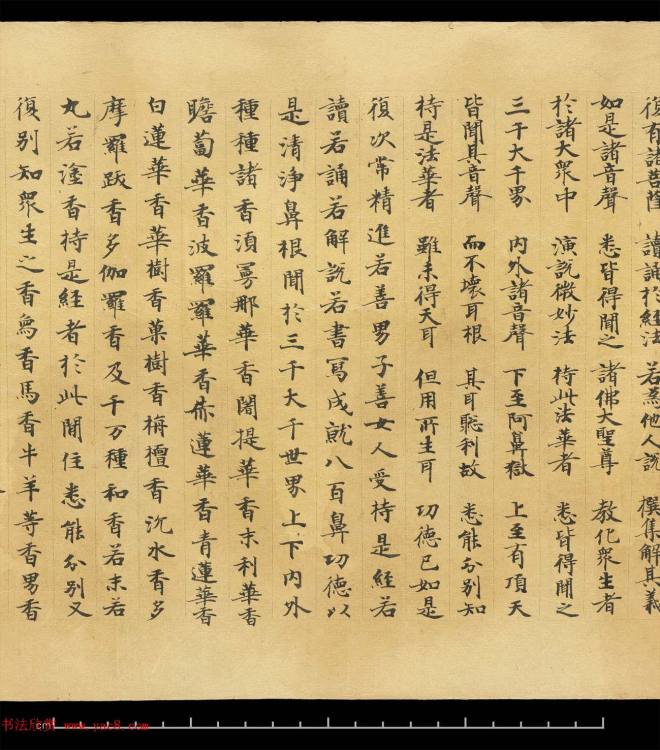 復有諸菩薩 讀誦於經法 若為他人說 撰集解其義
如是諸音聲 悉皆得聞之 諸佛大聖尊 教化衆生者
於諸大衆中 演說微妙法 持此法華者 悉皆得聞之
三千大千界 內外諸音聲 下至阿鼻獄 上至有頂天
皆聞其音聲 而不壞耳根 其耳聰利故 悉能分別知
持是法華者 雖未得天耳 但用所生耳 功德已如是
復次常精進若善男子善女人受持是經若
讀若誦若解說若書寫成就八百鼻功德以
是清淨鼻根聞於三千大千世界上下內外
種種諸香湏曼那華香闍提華香末利華香
瞻蔔華香波羅羅華香赤蓮華香青蓮華香
白蓮華香華樹香菓樹香栴檀香沉水香多
摩羅跋香多伽羅香及千万種和香若末若
丸若塗香持是經者於此間住悉能分別又
復別知衆生之香鳥香馬香牛羊等香男香
cm
书法欣赏 www.yac8.com